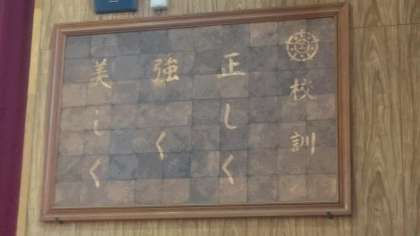 校訓
正しく
強く
美しく